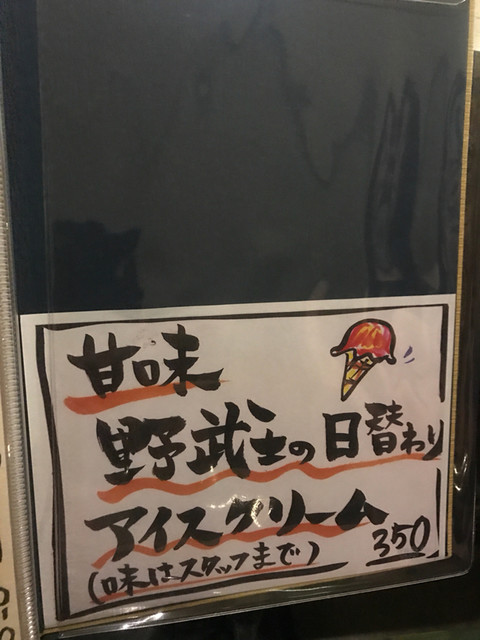 甘味
野武士の日替わり
アイスクリーム
350
(味はスタッフまで)